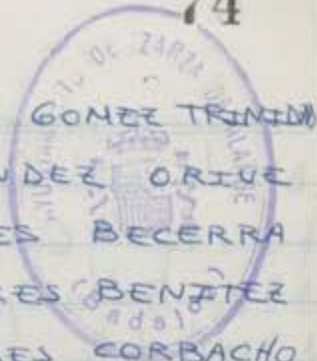 74
GOMEZ TRINIDAD
NDEZ ORIVE
ES BECERRA
RES BENITEZ
RES CORBACHO